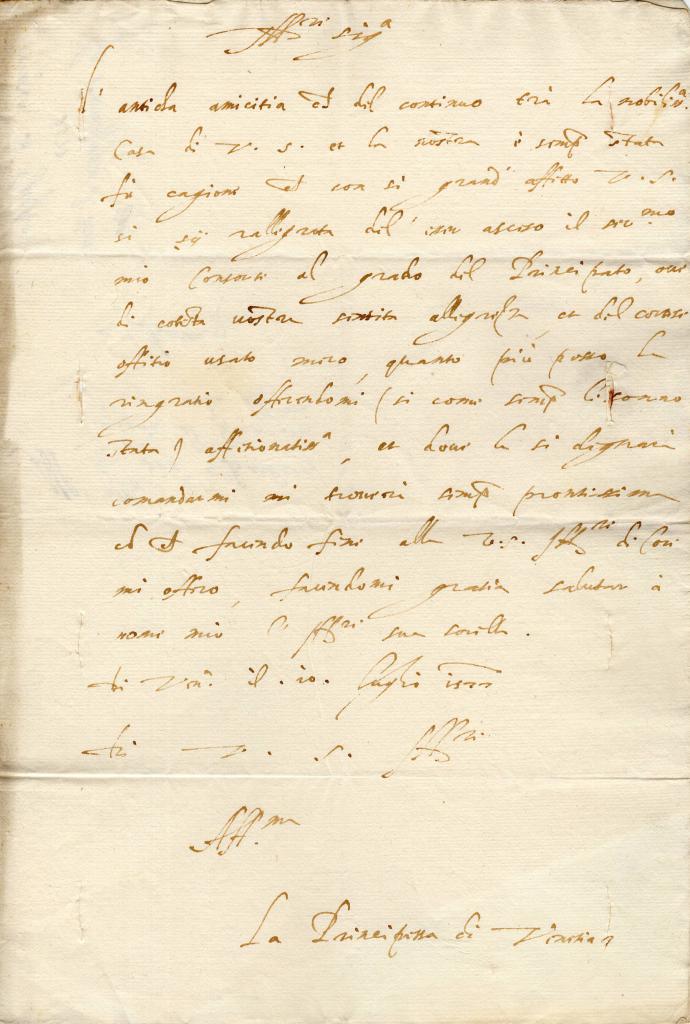 Ill.ri sig.a
l'anticha amicitia ch'del continuo trà la nobiliss.a
Casa di V. S. et la nostra è semp stata
fù cagione ch con si grand' affetto V. S.
si sij rallegrata del' asceso il ser.mo
mio Consorte al grado del Principato, onde
di cotesta vostra sentita allegrezza, et del cortese
offitio usato meco, quanto più posso la
ringratio offerendomi (si come semp
stata) affetionatiss.a, et dove la si degnarà
comandarmi mi troverà semp prontissima
facendo fine alla V.S. Ill.ri di Core
mi offero, facendomi gratia salutar à
nome mio l' Ill.ri sua sorella.
di Ven.a il .10. luglio 1577
di V. S. Ill.ri
Aff.ma
La Principessa di Venetia